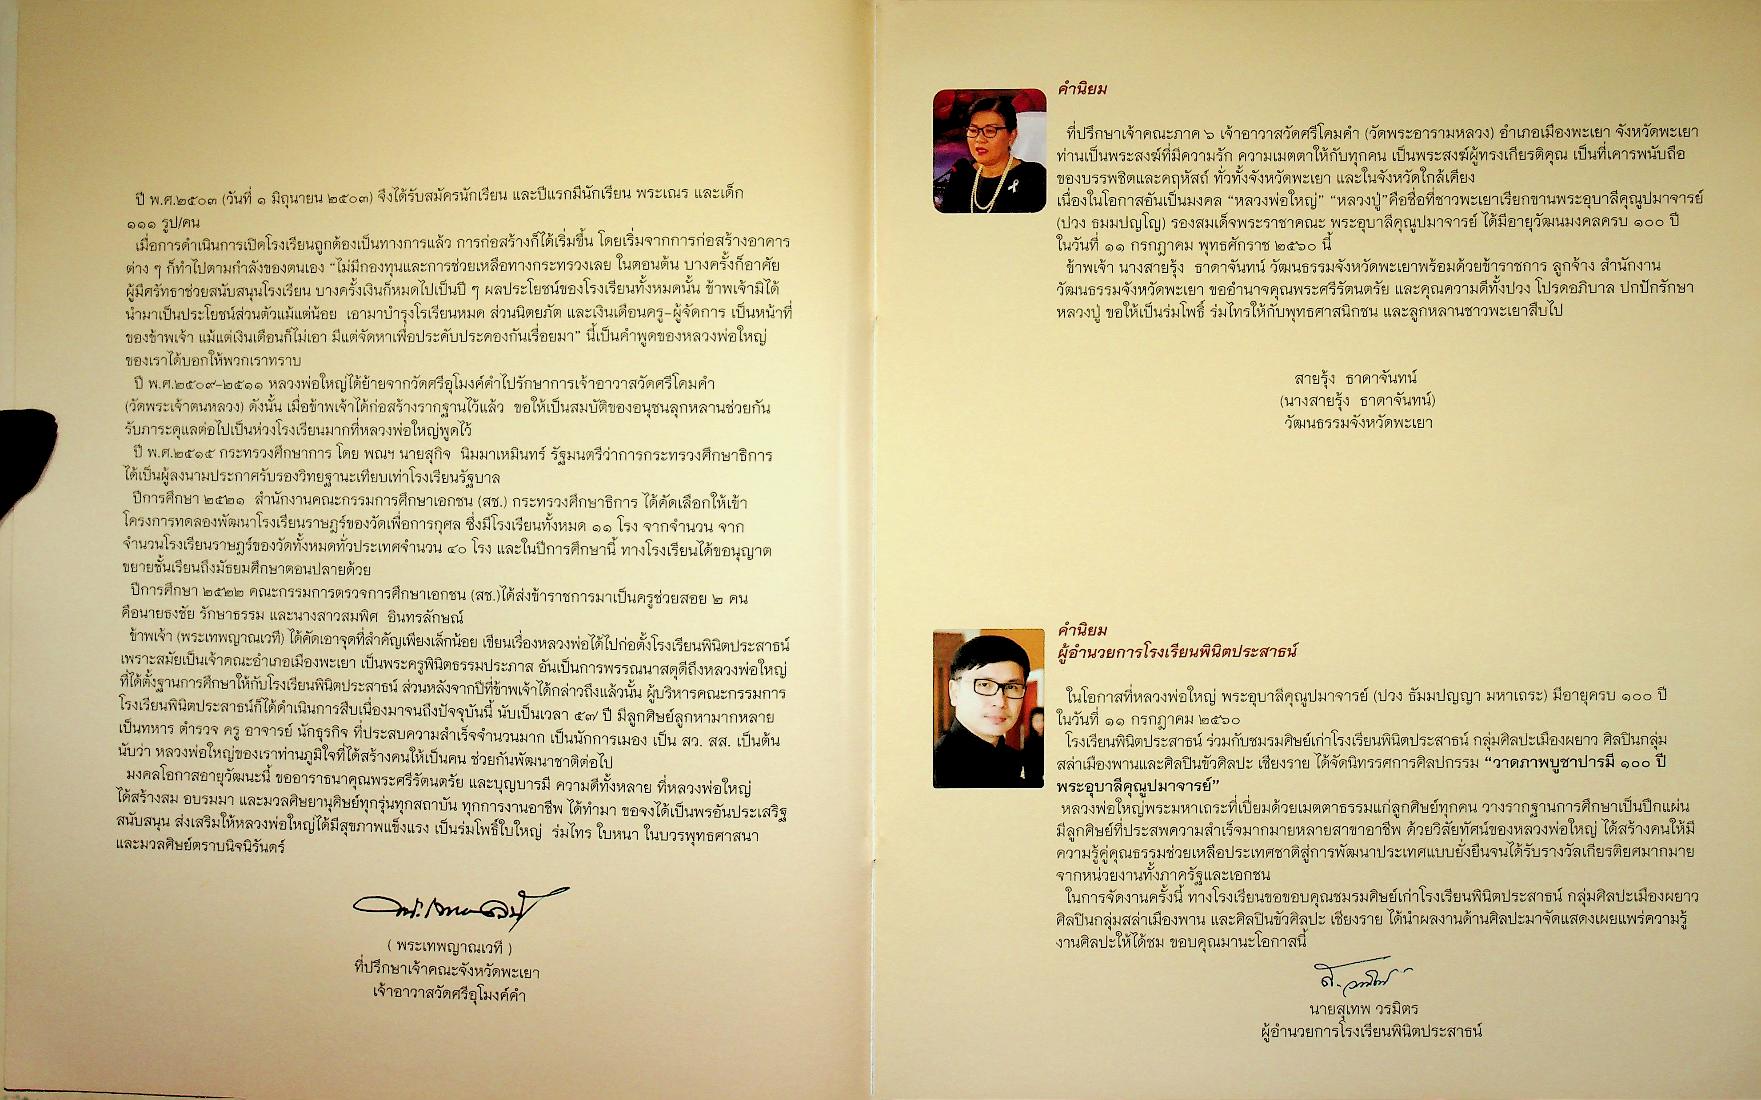 ปี พ.ศ.๒๕๐๓ (วันที่ ๑ มิถุนายน ๒๕๐๓) จึงได้รับสมัครนักเรียน และปีแรกมีนักเรียน พระเณร และเด็ก
๑๑๑ รูป/คน
เมื่อการดำเนินการเปิดโรงเรียนถูกต้องเป็นทางการแล้ว การก่อสร้างก็ได้เริ่มขึ้น โดยเริ่มจากการก่อสร้างอาคาร
ต่าง ๆ ก็ทำไปตามกำลังของตนเอง “ไม่มีกองทุนและการช่วยเหลือทางกระทรวงเลย ในตอนต้น บางครั้งก็อาศัย
ผู้มีศรัทธาช่วยสนับสนุนโรงเรียน บางครั้งเงินก็หมดไปเป็นปี ๆ ผลประโยชน์ของโรงเรียนทั้งหมดนั้น ข้าพเจ้ามิได้
นำมาเป็นประโยชน์ส่วนตัวแม้แต่น้อย เอามาบำรุงโรเรียนหมด ส่วนนิตยภัต และเงินเดือนครู-ผู้จัดการ เป็นหน้าที่
ของข้าพเจ้า แม้แต่เงินเดือนก็ไม่เอา มีแต่จัดหาเพื่อประคับประคองกันเรื่อยมา” นี้เป็นคำพูดของหลวงพ่อใหญ่
ของเราได้บอกให้พวกเราทราบ
ปี พ.ศ.๒๕๐๙-๒๕๑๑ หลวงพ่อใหญ่ได้ย้ายจากวัดศรีอุโมงค์คำไปรักษาการเจ้าอาวาสวัดศรีโคมคำ
(วัดพระเจ้าตนหลวง) ดังนั้น เมื่อข้าพเจ้าได้ก่อสร้างรากฐานไว้แล้ว ขอให้เป็นสมบัติของอนุชนลูกหลานช่วยกัน
รับภาระดูแลต่อไปเป็นห่วงโรงเรียนมากที่หลวงพ่อใหญ่พูดไว้
ปี พ.ศ.๒๕๑๕ กระทรวงศึกษาการ โดย พณฯ นายสุกิจ นิมมาเหมินทร์ รัฐมนตรีว่าการกระทรวงศึกษาธิการ
ได้เป็นผู้ลงนามประกาศรับรองวิทยฐานะเทียบเท่าโรงเรียนรัฐบาล
ปีการศึกษา ๒๕๒๑ สำนักงานคณะกรรมการศึกษาเอกชน (สช.) กระทรวงศึกษาธิการ ได้คัดเลือกให้เข้า
โครงการทดลองพัฒนาโรงเรียนราษฎร์ของวัดเพื่อการกุศล ซึ่งมีโรงเรียนทั้งหมด ๑๑ โรง จากจำนวน จาก
จำนวนโรงเรียนราษฎร์ของวัดทั้งหมดทั่วประเทศจำนวน ๔๐ โรง และในปีการศึกษานี้ ทางโรงเรียนได้ขอนุญาต
ขยายชั้นเรียนถึงมัธยมศึกษาตอนปลายด้วย
ปีการศึกษา ๒๕๒๒ คณะกรรมการตรวจการศึกษาเอกชน (สช.)ได้ส่งข้าราชการมาเป็นครูช่วยสอย ๒ คน
คือนายธงชัย รักษาธรรม และนางสาวสมพิศ อินทรลักษณ์
ข้าพเจ้า (พระเทพญาณเวที) ได้คัดเอาจุดที่สำคัญเพียงเล็กน้อย เขียนเรื่องหลวงพ่อได้ไปก่อตั้งโรงเรียนพินิตประสาธน์
เพราะสมัยเป็นเจ้าคณะอำเภอเมืองพะเยา เป็นพระครูพินิตธรรมประภาส อันเป็นการพรรณนาสดุดีถึงหลวงพ่อใหญ่
ที่ได้ตั้งฐานการศึกษาให้กับโรงเรียนพินิตประสาธน์ ส่วนหลังจากปีที่ข้าพเจ้าได้กล่าวถึงแล้วนั้น ผู้บริหารคณะกรรมการ
โรงเรียนพินิตประสาธน์ก็ได้ดำเนินการสืบเนื่องมาจนถึงปัจจุบันนี้ นับเป็นเวลา ๕๗ ปี มีลูกศิษย์ลูกหามากหลาย
เป็นทหาร ตำรวจ ครู อาจารย์ นักธุรกิจ ที่ประสบความสำเร็จจำนวนมาก เป็นนักการเมอง เป็น สว. สส. เป็นต้น
นับว่า หลวงพ่อใหญ่ของเราท่านภูมิใจที่ได้สร้างคนให้เป็นคน ช่วยกันพัฒนาชาติต่อไป
มงคลโอกาสอายุวัฒนะนี้ ขออาราธนาคุณพระศรีรัตนตรัย และบุญบารมี ความดีทั้งหลาย ที่หลวงพ่อใหญ่
ได้สร้างสม อบรมมา และมวลศิษยานุศิษย์ทุกรุ่นทุกสถาบัน ทุกการงานอาชีพ ได้ทำมา ขอจงได้เป็นพรอันประเสริฐ
สนับสนุน ส่งเสริมให้หลวงพ่อใหญ่ได้มีสุขภาพแข็งแรง เป็นร่มโพธิ์ใบใหญ่ ร่มไทร ใบหนา ในบวรพุทธศาสนา
และมวลศิษย์ตราบนิจนิรันดร์
( พระเทพญาณเวที )
ที่ปรึกษาเจ้าคณะจังหวัดพะเยา
เจ้าอาวาสวัดศรีอุโมงค์คำ
คำนิยม
ที่ปรึกษาเจ้าคณะภาค ๖ เจ้าอาวาสวัดศรีโคมคำ (วัดพระอารามหลวง) อำเภอเมืองพะเยา จังหวัดพะเยา
ท่านเป็นพระสงฆ์ที่มีความรัก ความเมตตาให้กับทุกคน เป็นพระสงฆ์ผู้ทรงเกียรติคุณ เป็นที่เคารพนับถือ
ของบรรพชิตและคฤหัสถ์ ทั่วทั้งจังหวัดพะเยา และในจังหวัดใกล้เคียง
เนื่องในโอกาสอันเป็นมงคล “หลวงพ่อใหญ่” “หลวงปู่”คือชื่อที่ชาวพะเยาเรียกขานพระอุบาลีคุณูปมาจารย์
(ปวง ธมมปญฺโญ) รองสมเด็จพระราชาคณะ พระอุบาลีคุณูปมาจารย์ ได้มีอายุวัฒนมงคลครบ ๑๐๐ ปี
ในวันที่ ๑๑ กรกฎาคม พุทธศักราช ๒๕๖๐ นี้
ข้าพเจ้า นางสายรุ้ง ธาดาจันทน์ วัฒนธรรมจังหวัดพะเยาพร้อมด้วยข้าราชการ ลูกจ้าง สำนักงาน
วัฒนธรรมจังหวัดพะเยา ขออำนาจคุณพระศรีรัตนตรัย และคุณความดีทั้งปวง โปรดอภิบาล ปกปักรักษา
หลวงปู่ ขอให้เป็นร่มโพธิ์ ร่มไทรให้กับพุทธศาสนิกชน และลูกหลานชาวพะเยาสืบไป
สายรุ้ง ธาดาจันทน์
(นางสายรุ้ง ธาดาจันทน์)
วัฒนธรรมจังหวัดพะเยา
คำนิยม
ผู้อำนวยการโรงเรียนพินิตประสาธน์
ในโอกาสที่หลวงพ่อใหญ่ พระอุบาลีคุณูปมาจารย์ (ปวง ธัมมปญญา มหาเถระ) มีอายุครบ ๑๐๐ ปี
ในวันที่ ๑๑ กรกฎาคม ๒๕๖๐
โรงเรียนพินิตประสาธน์ ร่วมกับชมรมศิษย์เก่าโรงเรียนพินิตประสาธน์ กลุ่มศิลปะเมืองพยาว ศิลปินกลุ่ม
สล่าเมืองพานและศิลปินขัวศิลปะ เชียงราย ได้จัดนิทรรศการศิลปกรรม “วาดภาพบูชาปารมี ๑๐๐ ปี
พระอุบาลีคุณูปมาจารย์”
หลวงพ่อใหญ่พระมหาเถระที่เปี่ยมด้วยเมตตาธรรมแก่ลูกศิษย์ทุกคน วางรากฐานการศึกษาเป็นปึกแผ่น
มีลูกศิษย์ที่ประสพความสำเร็จมากมายหลายสาขาอาชีพ ด้วยวิสัยทัศน์ของหลวงพ่อใหญ่ ได้สร้างคนให้มี
ความรู้คู่คุณธรรมช่วยเหลือประเทศชาติสู่การพัฒนาประเทศแบบยั่งยืนจนได้รับรางวัลเกียรติยศมากมาย
จากหน่วยงานทั้งภาครัฐและเอกชน
ในการจัดงานครั้งนี้ ทางโรงเรียนขอขอบคุณชมรมศิษย์เก่าโรงเรียนพินิตประสาธน์ กลุ่มศิลปะเมืองพยาว
ศิลปินกลุ่มสล่าเมืองพาน และศิลปินขัวศิลปะ เชียงราย ได้นำผลงานด้านศิลปะมาจัดแสดงเผยแพร่ความรู้
งานศิลปะให้ได้ชม ขอบคุณมานะโอกาสนี้
นายสุเทพ วรมิตร
ผู้อำนวยการโรงเรียนพินิตประสาธน์